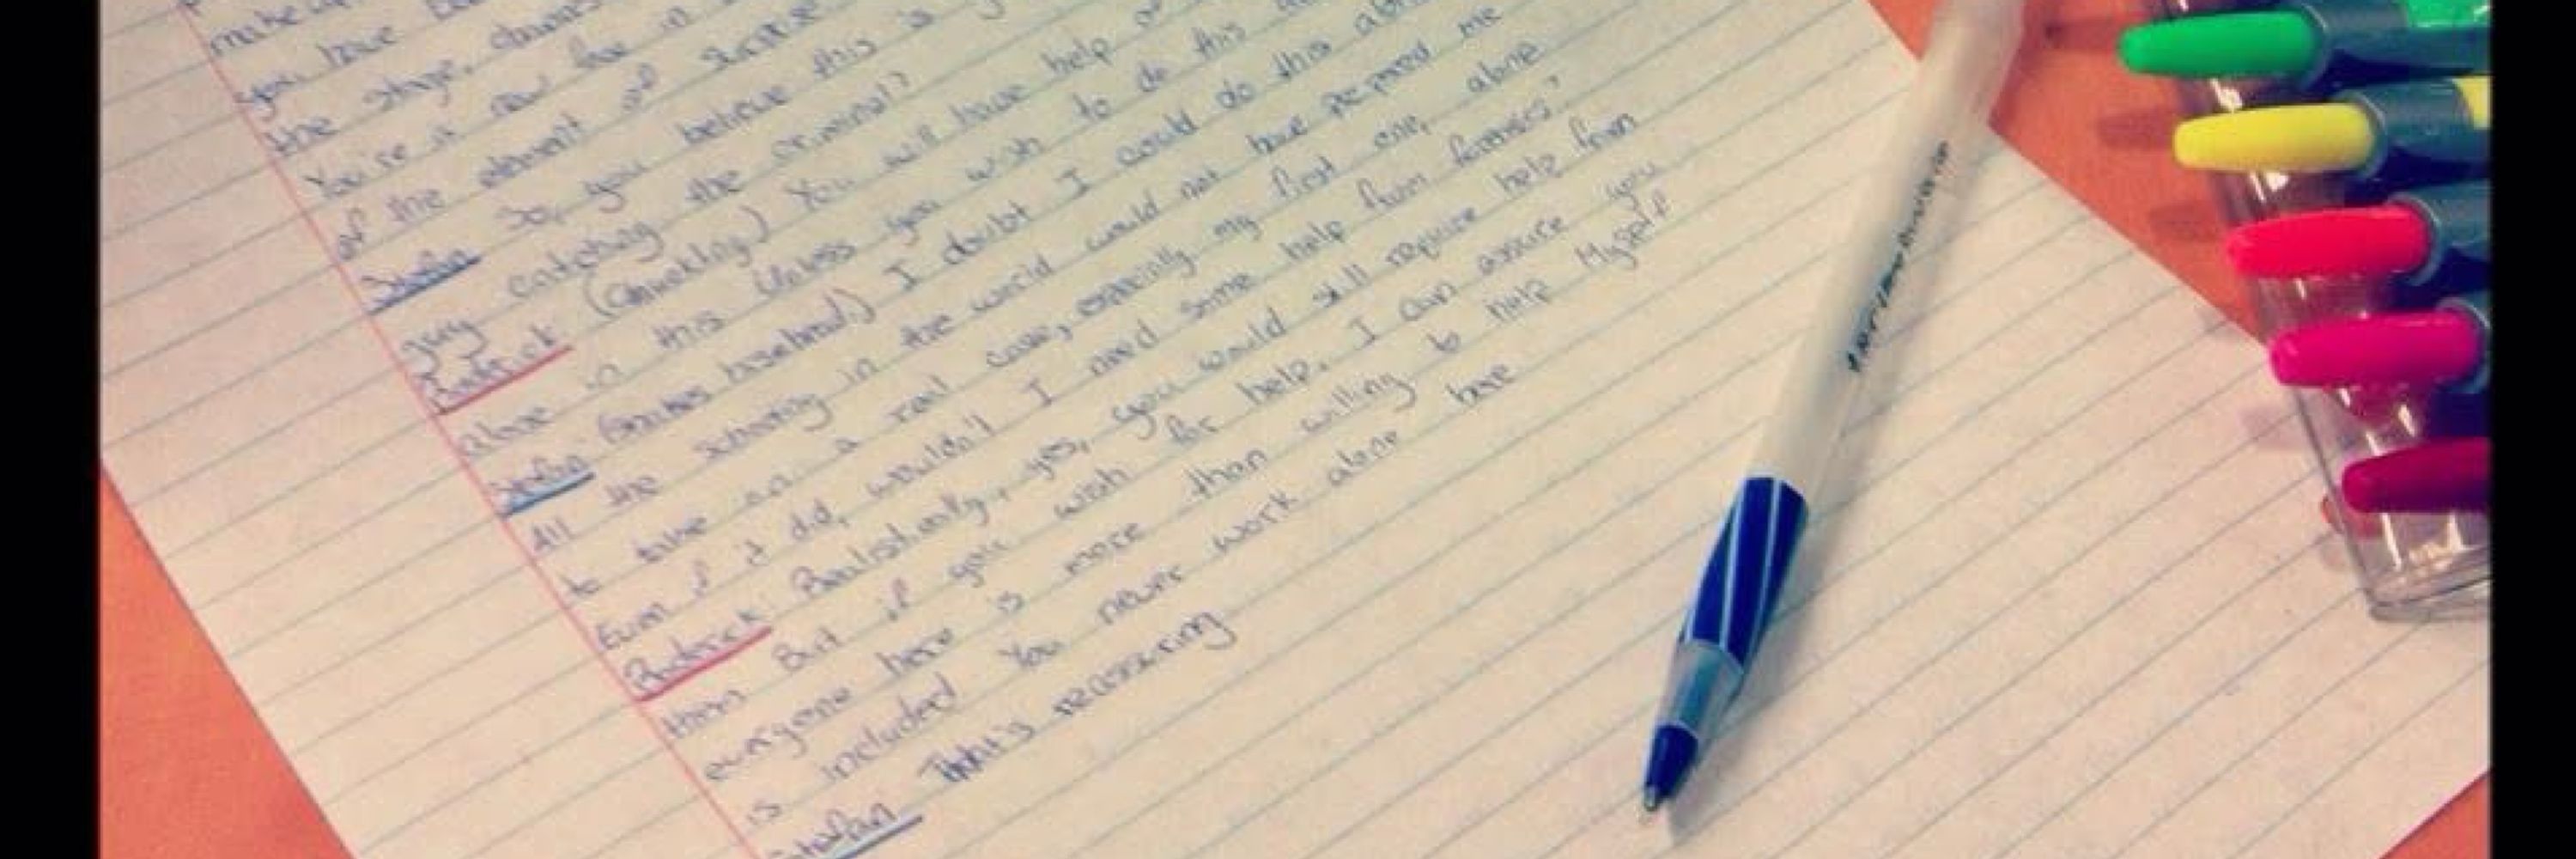 make
you have
the stage,
You're it now
of the element of surprise
Stefan So, you believe this is
guy catching the criminal?
Roderick (chuckling) You will have help or
alone in this. Unless you wish to do this
Stefan (shakes his head) I doubt I could do this
All the schooling in the world would not have prepared me
to take on a real case, especially my first one, alone
Even if it did, wouldn't I need some help from forensics?
Roderick Realistically, yes, you would still require help from
them But if you wish for help, I can assure you
everyone here is more than willing to help Myself
is included You never work alone here
Stefan That's reassuring